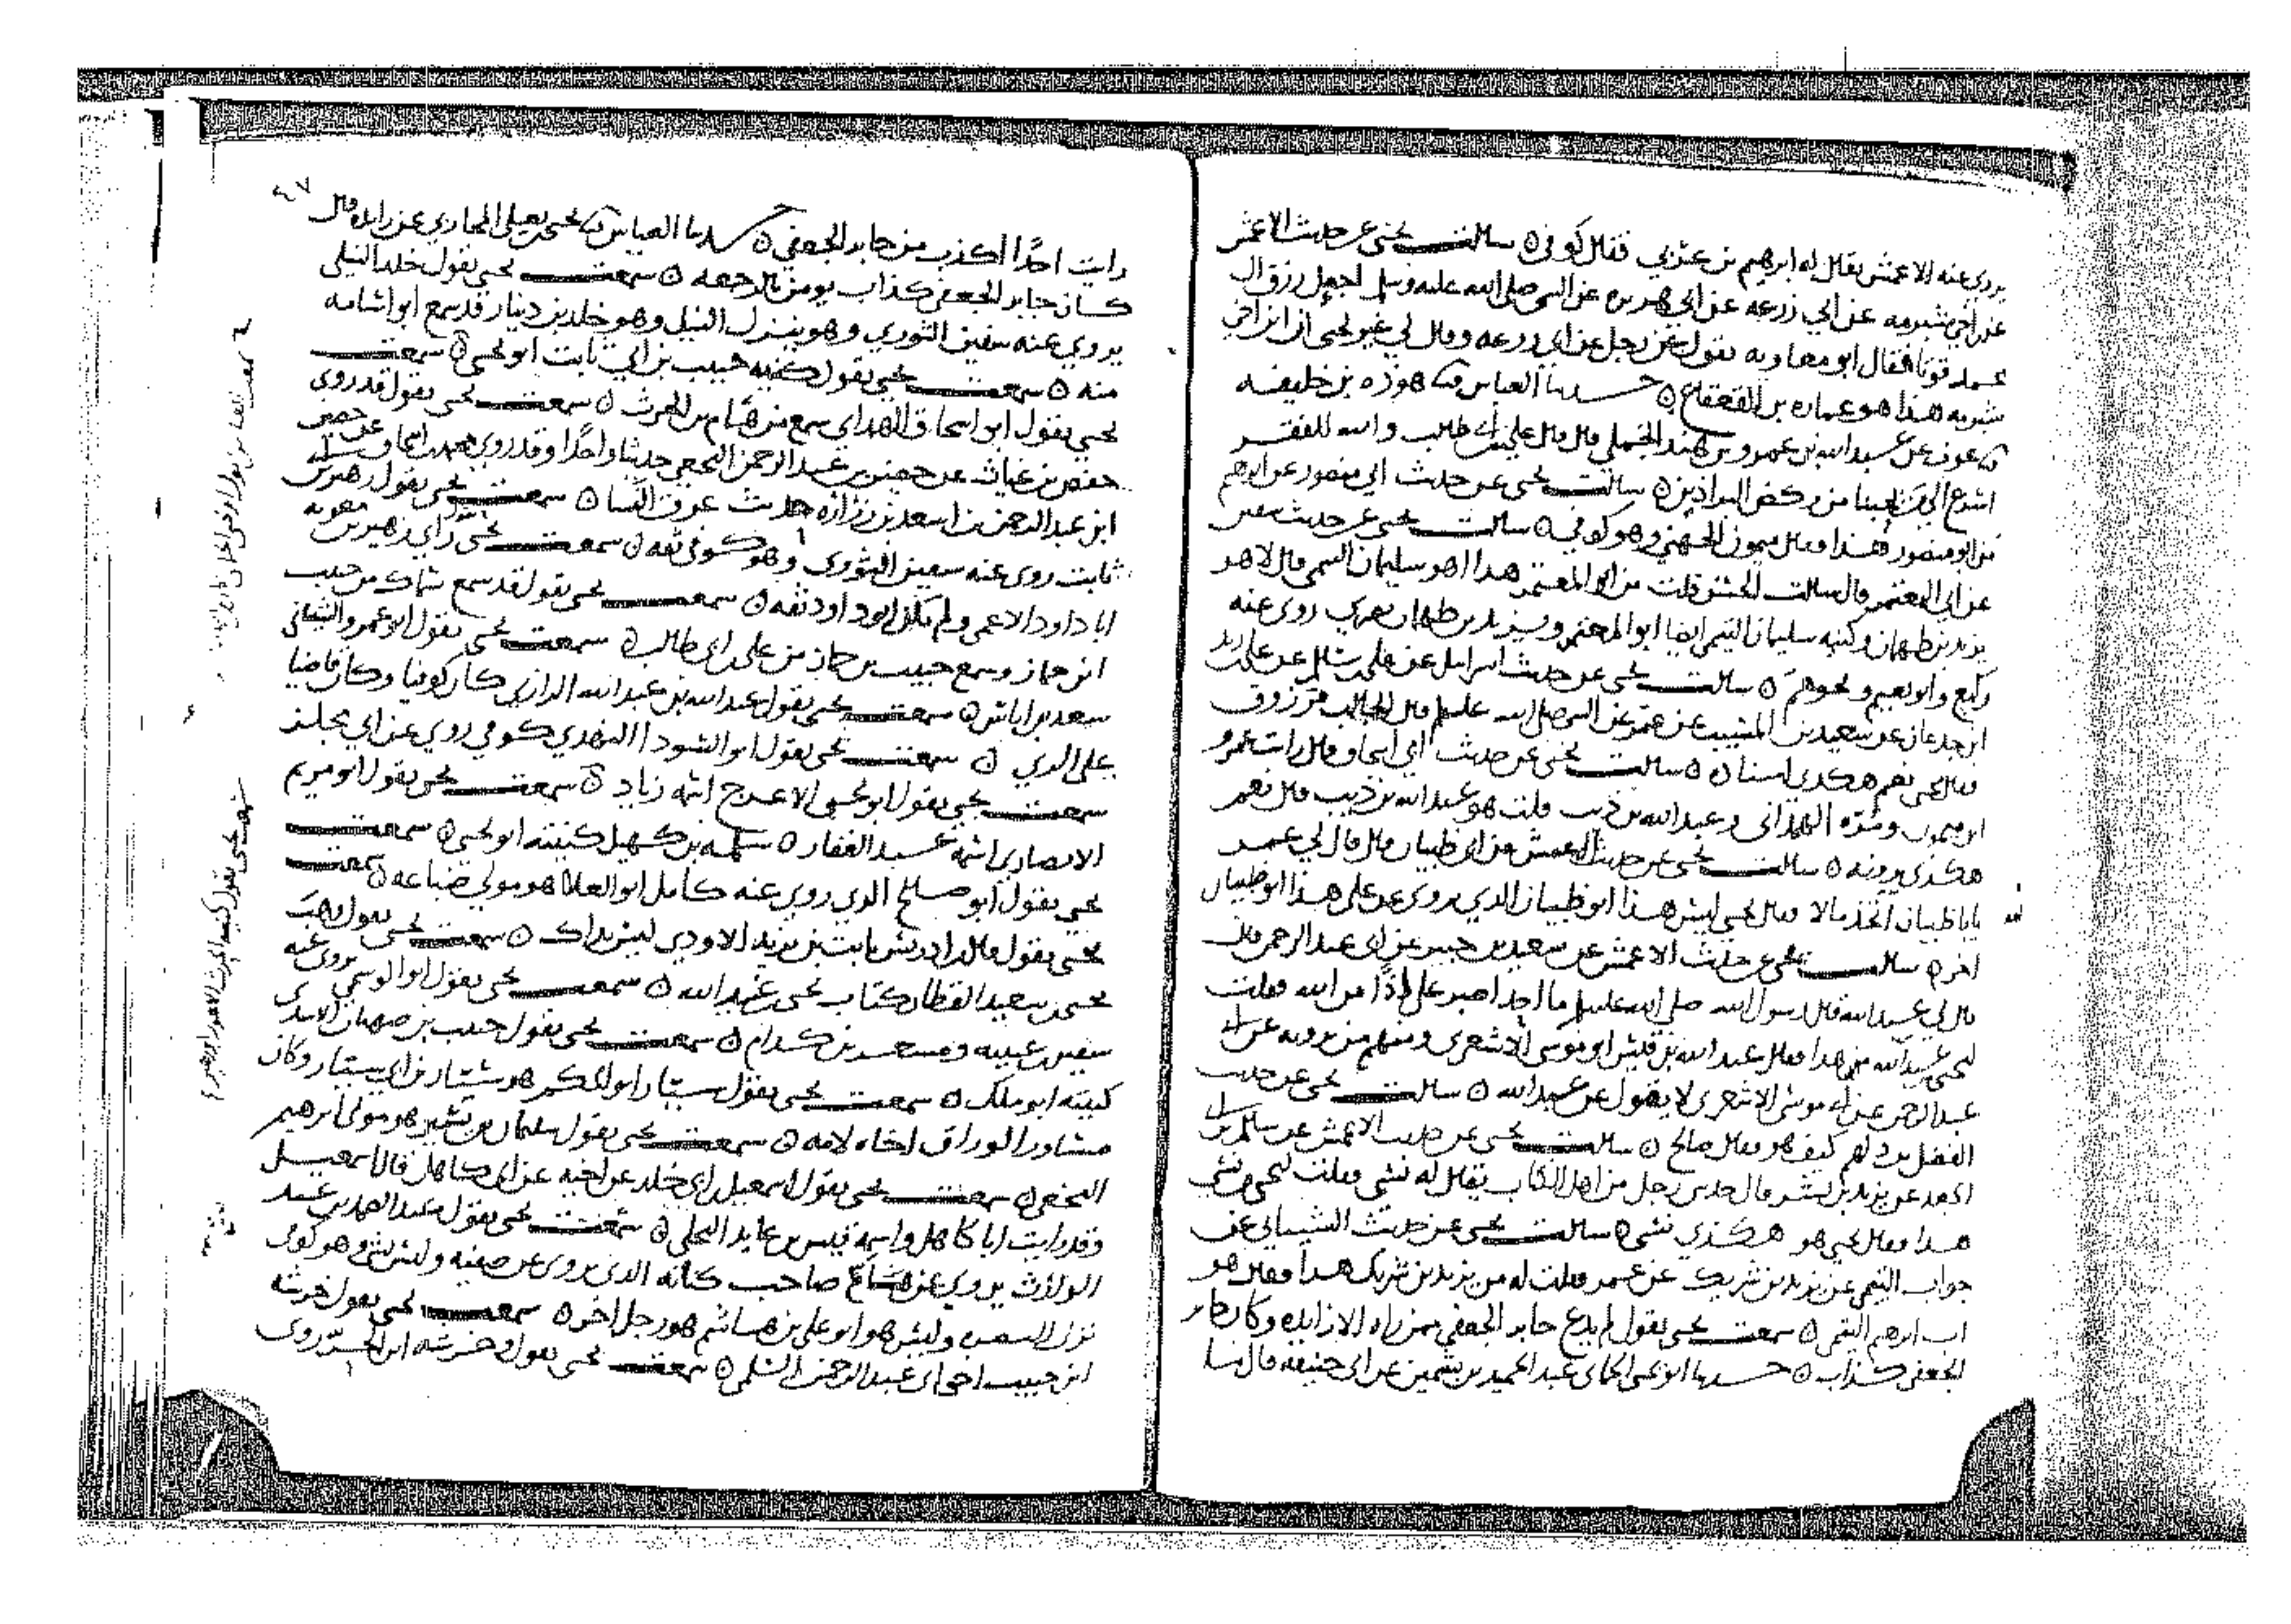 يروي عنه الاعمش يقال له ابرهيم بن عربي فقال كوفي ٥ سالت يحيى عن حديث الاعمش
عن ابن شبرمه عن ابي زرعه عن ابي هريره عن النبي صلى الله عليه وسلم اجعل رزق ال
محمد قوتا فقال ابو معاويه يقول عن رجل عن ابي زرعه وقال لي غير يحيى ان ابن اخي
شبرمه هذا هو عماره بن القعقاع ٥ حدثنا العباس هوذه بن خليفه
عوف عن عبد الله بن عمرو بن هند الجملي قال قال علي بن ابي طالب والله للفقر
اسرع الى من يحبنا من ركض البراذين ٥ سالت يحيى عن حديث ابي منصور عن ابرهيم
من ابو منصور هذا فقال ميمون الجهني وهو كوفي ٥ سالت يحيى عن حديث
عن ابي المعتمر قال سالت الحسن قلت من ابو المعتمر هذا اهو سليمان التيمي قال لا هو
يزيد بن طهمان وكنيه سليمان التيمي ايضا ابو المعتمر ويزيد بن طهمان بصري روى عنه
وكيع وابو نعيم ونحوهم ٥ سالت يحيى عن حديث اسرائيل عن علي بن سالم عن علي بن زيد
ابن جدعان عن سعيد بن المسيب عن عمر عن النبي صلى الله عليه وسلم قال الجالب مرزوق
فقال يحيى نعم هكذى اسناده ٥ سالت يحيى عن حديث ابي اسحاق قال رايت عمرو
ابن ميمون ومره الهمداني وعبد الله بن ذيب قلت هو عبد الله بن ذيب قال نعم
هكذى يروونه ٥ سالت يحيى عن حديث الاعمش عن ابي ظبيان قال قال لي عمر
يابا ظبيان اتخذ مالا فقال يحيى ليس هذا ابو ظبيان الذي يروي عن علي هذا ابو ظبيان
اخر ٥ سالت يحيى عن حديث الاعمش عن سعيد بن جبير عن ابي عبد الرحمن قال
قال لي عبد الله قال رسول الله صلى الله عليه وسلم ما احد اصبر على اذًا من الله فقلت
ليحيى عبد الله من هذا فقال عبد الله بن قيس ابو موسى الاشعري ومنهم من يرويه عن ابي
عبد الرحمن عن ابي موسى الاشعري لا يقول عن عبد الله ٥ سالت يحيى عن حديث
الفضل بن دلهم كيف هو فقال صالح ٥ سالت يحيى عن حديث الاعمش عن سالم بن ابي
الجعد عن يزيد بن بشر قال حدثني رجل من اهل الكتاب يقال له نشي فقلت ليحيى من نشي
هذا فقال يحيى هو هكذي نشي ٥ سالت يحيى عن حديث الشيباني عن
جواب التيمي عن يزيد بن شريك عن عمر فقلت له من يزيد بن شريك هذا فقال هو
اب ابرهيم التيمي ٥ سمعت يحيى يقول لم يدع جابر الجعفي ممن راه الا زايده وكان جابر
الجعفي كذاب ٥ حدثنا ابو يحيى الحماني عبد الحميد بن بشمين عن ابي حنيفه قال ما
رايت احدًا اكذب من جابر الجعفي ٥ حدثنا العباس يحيى بن يعلى المحاربي عن زايده قال
كان جابر الجعفي كذاب يومن بالرجعه ٥ سمعت يحيى يقول خلد النيلي
يروي عنه سفين الثوري وهو ينزل النيل وهو خلد بن دينار قد سمع ابو اسامه
منه ٥ سمعت يحيى يقول كنيه حبيب بن ابي ثابت ابو يحيى ٥ سمعت
يحيى يقول ابو اسحاق الهمداني سمع من همام بن الحرث ٥ سمعت يحيى يقول قد روى
حفص بن غياث عن حصين بن عبد الرحمن النخعي حديثا واحدًا وقد روى محمد بن اسحاق عن حصين
ابن عبد الرحمن بن اسعد بن زراره حديث عرق النسا ٥ سمعت يحيى يقول زهير بن ابي
ثابت روى عنه سفين الثوري وهو كوفي ثقه ٥ سمعت يحيى راى زهير بن معويه
ابا داود الاعمى ولم يكن ابو داود ثقه ٥ سمعت يحيى يقول قد سمع سماك من حبيب
ابن حماز وسمع حبيب بن حماز من علي بن ابي طالب ٥ سمعت يحيى يقول ابو عمرو الشيباني
سعد بن اياس ٥ سمعت يحيى يقول عبد الله بن عبد الله الرازي كان كوفيا وكان قاضيا
على الري ٥ سمعت يحيى يقول ابو السودا النهدي كوفي روى عن ابي مجلز
سمعت يحيى يقول ابو يحيى الاعرج اسمه زياد ٥ سمعت يحيى يقول ابو مريم
الانصاري اسمه عبد الغفار ٥ سلمه بن كهيل كنيته ابو يحيى ٥ سمعت
يحيى يقول ابو صالح الذي روى عنه كامل ابو العلا هو مولى ضباعه ٥ سمعت
يحيى يقول قال ابن ادريس ثابت بن يزيد الاودي ليس بذاك ٥ سمعت يحيى يقول وهب
يحيى بن سعيد القطان كتاب يحيى بن عبيد الله ٥ سمعت يحيى يقول ابو الوسمي يروي عنه
سفين بن عيينه ومسعر بن كدام ٥ سمعت يحيى يقول حبيب بن صهبان الاسدي
كنيته ابو ملك ٥ سمعت يحيى يقول سيار ابو الحكم هو سيار بن ابي سيار وكان
مساور الوراق اخاه لامه ٥ سمعت يحيى يقول سليمان بن يسير هو مولى ابرهيم
النخعي ٥ سمعت يحيى يقول اسمعيل بن ابي خلد عن اخيه عن ابي كاهل قال اسمعيل
وقد رايت ابا كاهل واسمه قيس بن عايذ البجلي ٥ سمعت يحيى يقول عبد الحميد بن عبيد
الوارث يروي عن صاحب كانه الذي يروي عن صفيه وليس بشي وهو كوفي
نزل البصره وليس هو ابو علي بن هاشم هو رجل اخر ٥ سمعت يحيى يقول خرشه
ابن حبيب اخي ابي عبد الرحمن السلمي ٥ سمعت يحيى يقول وخرشه ابن الحر روى
سمعت يحيى يقول كنيه الحرث الاعور ابو زهير